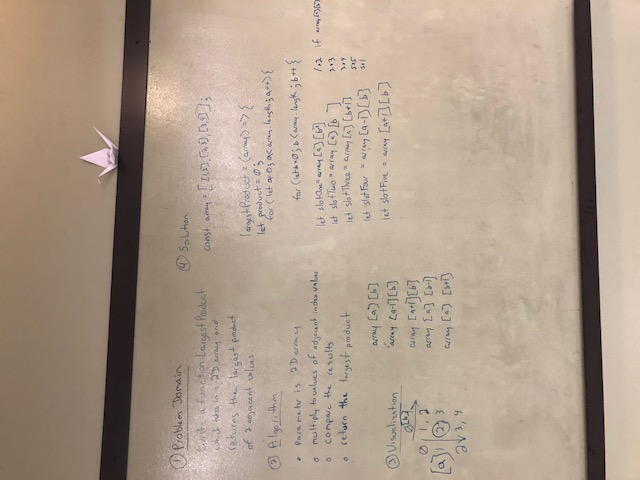 ① Problem Domain
Write a function LargestProduct
which takes in a 2D array and
returns the largest product
of 2 adjacent values.
② Algorithm
o parameter is 2D array
o multiply to values of adjacent index values
o compare the results
o return the largest product
③ Visualization
[b]
0 1, 2
[a] 1 2, 3
2 3, 4
array [a] [b]
array [a-1] [b]
array [a+1] [b]
array [a] [b-1]
array [a] [b+1]
④ Solution
const array =
largestProduct = (array) => {
let product = 0;
for (let a=0; a< array.length; a++) {
for (let b=0; b< array.length; b++ {
let slotOne = array [a] [b]
let slotTwo = array [a] [b
let slotThree = array [a] [b+1]
let slotFour = array [a-1] [b]
let slotFive = array [a+1] [b]
1x2 if